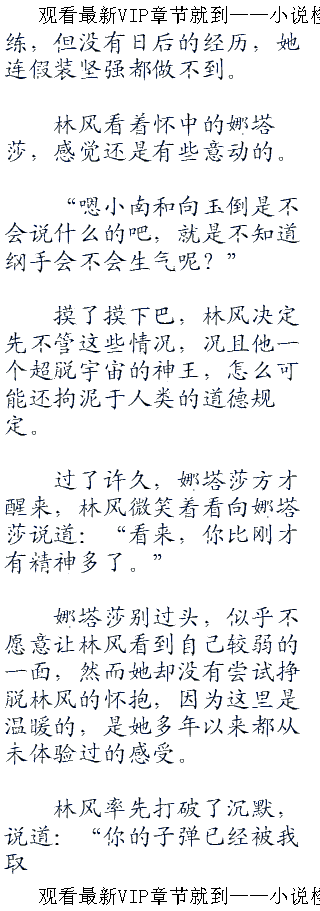 观看最新VIP章节就到——小说检
练，但没有日后的经历，她
连假装坚强都做不到。
林风看着怀中的娜塔
莎，感觉还是有些意动的。
“嗯小南和向玉倒是不
会说什么的吧，就是不知道
纲手会不会生气呢？”
摸了摸下巴，林风决定
先不管这些情况，况且他一
个超脱宇宙的神王，怎么可
能还拘泥于人类的道德规
定。
过了许久，娜塔莎方才
醒来，林风微笑着看向娜塔
莎说道：“看来，你比刚才
有精神多了。”
娜塔莎别过头，似乎不
愿意让林风看到自己较弱的
一面，然而她却没有尝试挣
脱林风的怀抱，因为这里是
温暖的，是她多年以来都从
未体验过的感受。
林风率先打破了沉默，
说道：“你的子弹已经被我
取
观看最新VIP章节就到——小说检